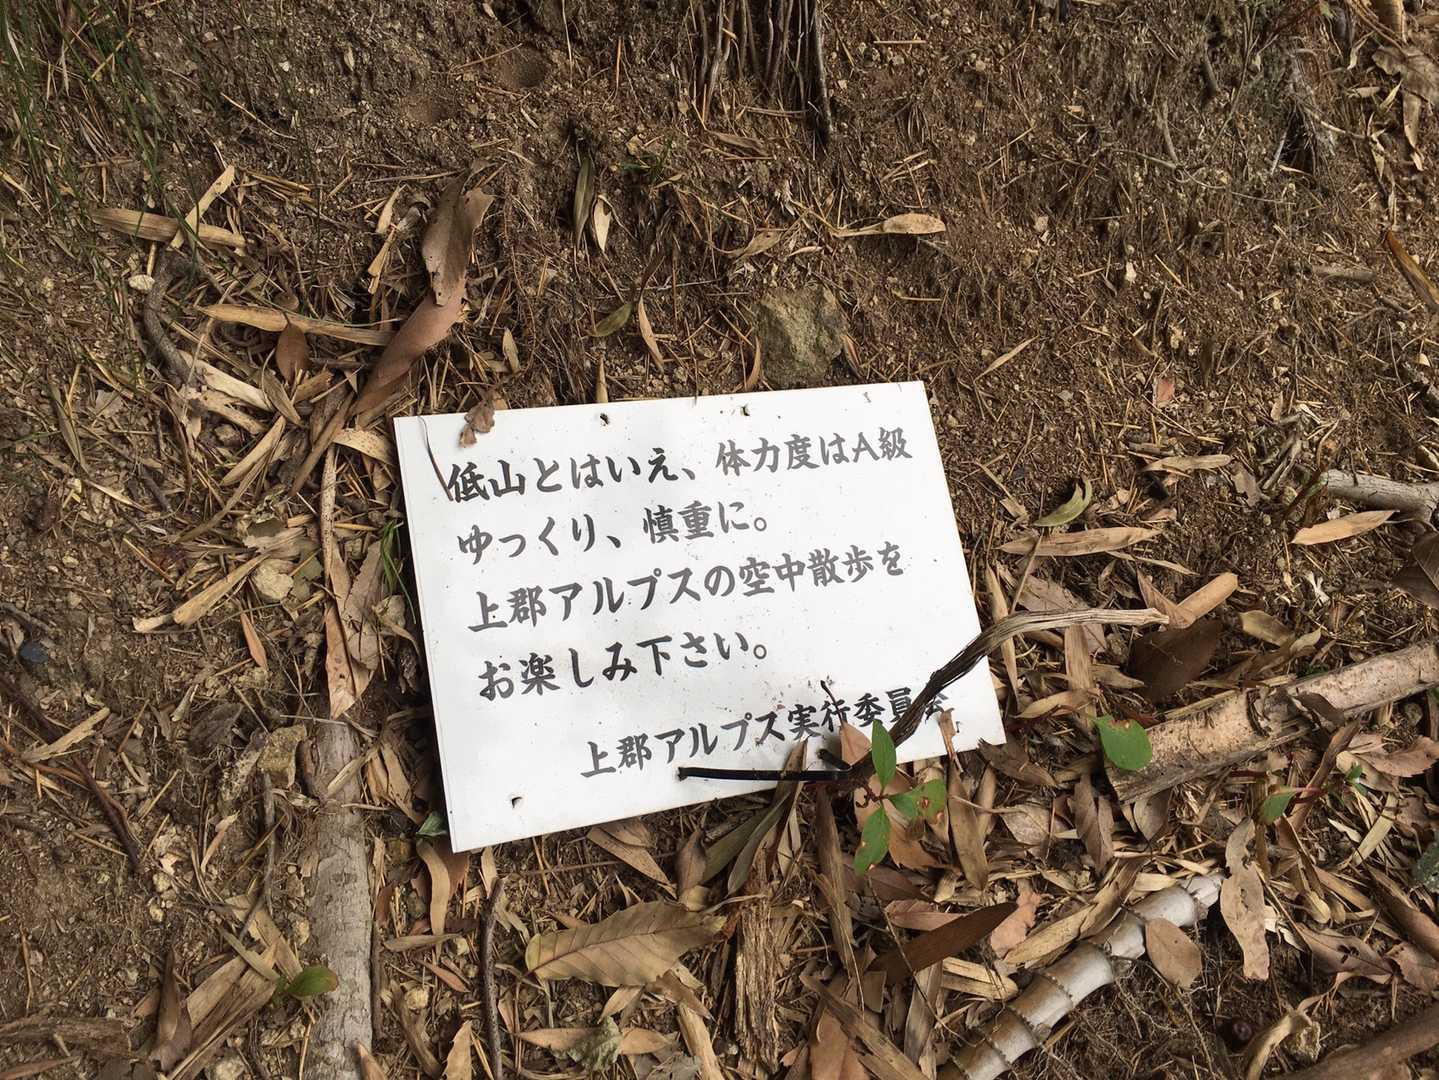 低山とはいえ、体力度はA級
ゆっくり、慎重に。
上郡アルプスの空中散歩を
お楽しみ下さい。
上郡アルプス実行委員会